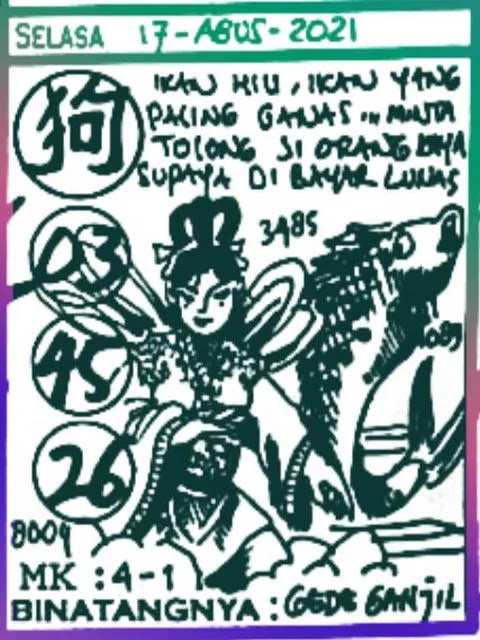 SELASA 17-ABUS-2021
狗
IKAN HIU, IKAN YANG
PALING GANAS ... MINTA
TOLONG SI ORANG KAYA
SUPAYA DI BAYAR LUNAS
3485
03
45
26
8009
MK : 4-1
BINATANGNYA : GEDE GANJIL